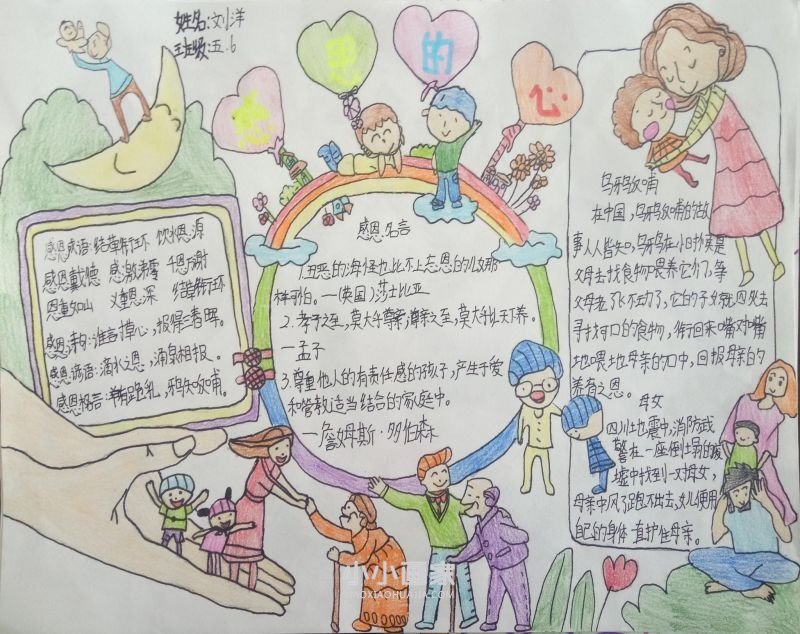 姓名:刘洋
班级:五.6
感恩的心
感恩成语:结草衔环 饮水思源
感恩戴德 感激涕零 千恩万谢
恩重如山 义重恩深 结草衔环
感恩诗句:谁言寸草心,报得三春晖。
感恩谚语:滴水之恩,涌泉相报。
感恩格言:羊有跪乳,鸦知反哺。
感恩名言
1.丑恶的海怪也比不上忘恩的儿女那
样可怕。—(英国)莎士比亚
2.孝子之至,莫大乎尊亲;尊亲之至,莫大乎以天下养。
—孟子
3.尊重他人的有责任感的孩子,产生于爱
和管教适当结合的家庭中。
—詹姆斯·多伯森
乌鸦反哺
在中国,乌鸦反哺的故
事人人皆知,乌鸦在小时候是
父母去找食物喂养它们,等
父母老了飞不动了,它的子女就四处去
寻找可口的食物,衔回来嘴对嘴
地喂地母亲的口中,回报母亲的
养育之恩。
母女
四川地震中,消防武
警在一座倒塌的废
墟中找到一对母女,
母亲中风了跑不出去,女儿便用
自己的身体直护住母亲。
小小画家
XIAOXIAOHUAJIA.COM